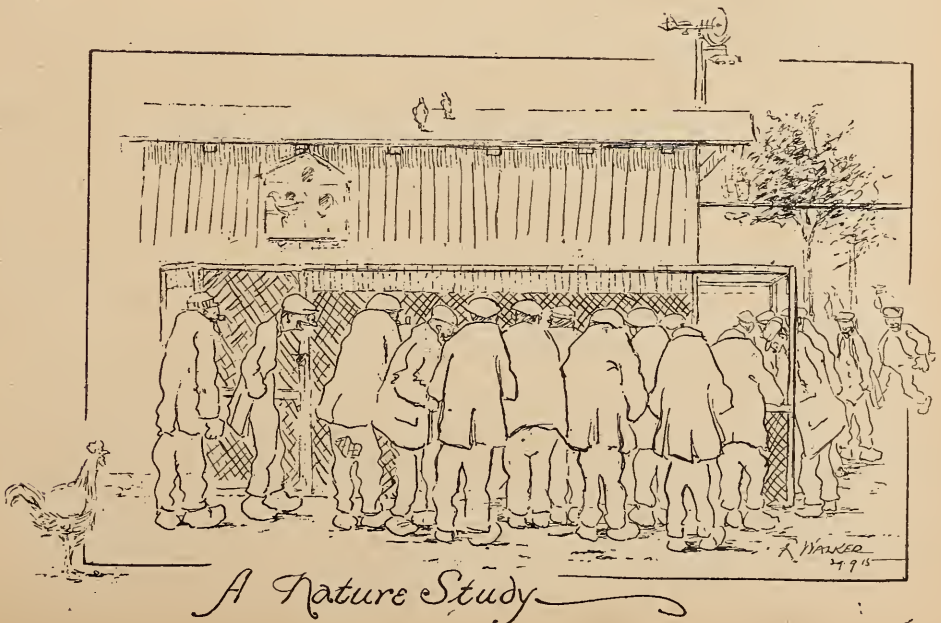 R WALKER
29.9.15
A Nature Study